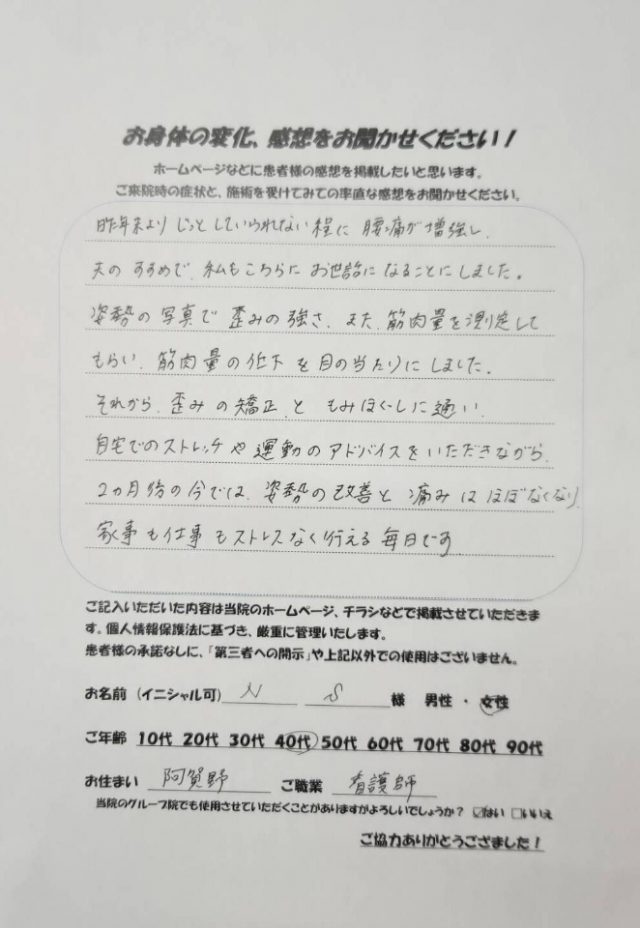 お身体の変化、感想をお聞かせください！
ホームページなどに患者様の感想を掲載したいと思います。
ご来院時の症状と、施術を受けてみての率直な感想をお聞かせください。
昨年末より じっと していられない 程に 腰痛が 増強し、
夫の すすめで、私もこちらに お世話に なることに しました。
姿勢の 写真で 歪みの 強さ、また、筋肉量を 測定して
もらい、筋肉量の 低下 を 目の当たりに しました。
それから、歪み の 矯正 と もみほぐしに 通い、
自宅での ストレッチ や 運動の アドバイスを いただきながら、
2ヵ月後の 今では、姿勢の 改善と 痛みは ほぼなくなり、
家事も 仕事も ストレスなく 行える 毎日です
ご記入いただいた内容は当院のホームページ、チラシなどで掲載させていただきま
す。個人情報保護法に基づき、厳重に管理いたします。
患者様の承諾なしに、「第三者への開示」や上記以外での使用はございません。
お名前（イニシャル可） N S 様 男性 ・ 女性
ご年齢 10代 20代 30代 40代 50代 60代 70代 80代 90代
お住まい 阿賀野 ご職業 看護師
当院のグループ院でも使用させていただくことがありますがよろしいでしょうか？ ☑はい □いいえ
ご協力ありがとうござました！